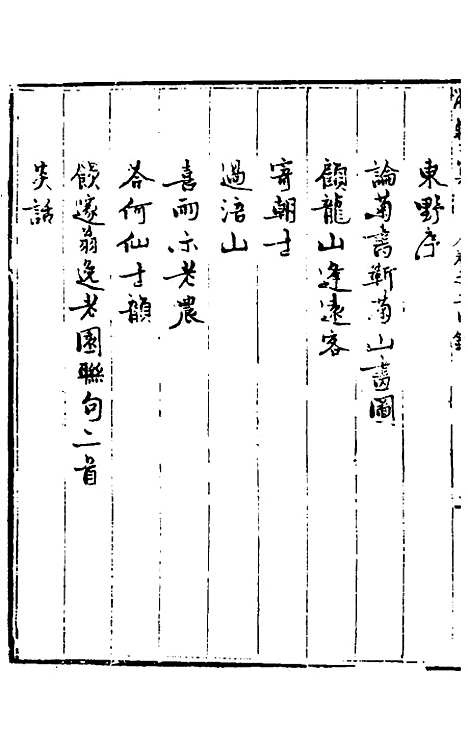 東野序
論菊書靳菊山畵圖
顧龍山逢遠客
寄朝士
過浯山
喜雨示老農
答何仙士韻
餞邃翁逸老園聯句二首
炎話